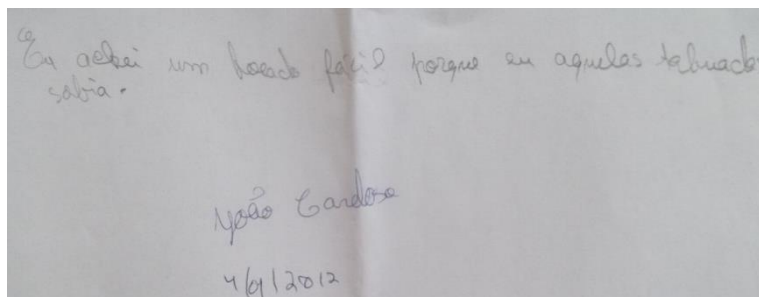 Eu achei um bocado fácil porque eu aquelas tabuadas
sabia.
João Cardoso
4/9/2012